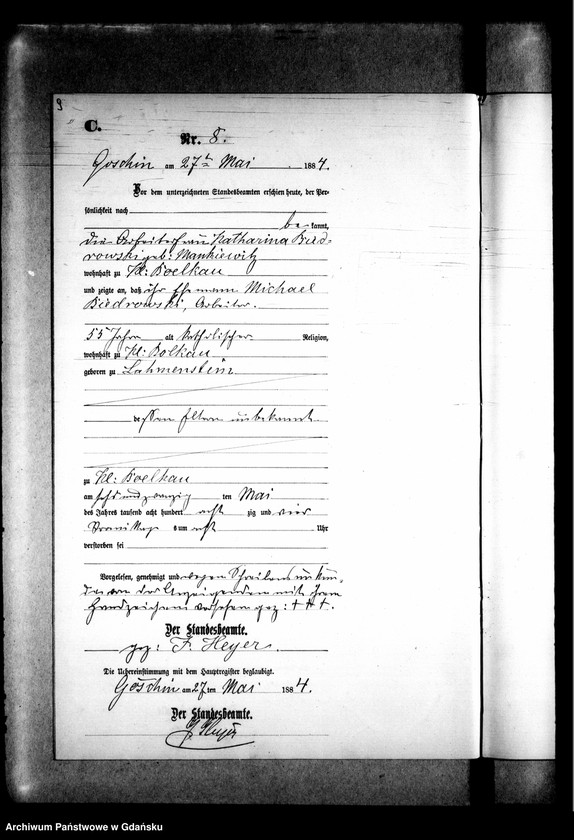 9
C.
Nr. 8.
Goschin am 27ten Mai 1884.
Vor dem unterzeichneten Standesbeamten erschien heute, der Per-
sönlichkeit nach
bekannt,
die Arbeiterfrau Katharina Bied-
rowski geb: Mankiewitz
wohnhaft zu Kl: Boelkau
und zeigte an, daß ihr Ehemann Michael
Biedrowski, Arbeiter.
55 Jahre alt katholischer Religion,
wohnhaft zu Kl: Bolkau
geboren zu Lahmenstein
dessen Eltern unbekannt
zu Kl: Boelkau
am sechs und zwanzig ten Mai
des Jahres tausend acht hundert acht zig und vier
Vormittags um acht Uhr
verstorben sei
Vorgelesen, genehmigt und wegen Schreibens unkun-
de von der Anzeigenden mit ihrem
Handzeichen versehen gez: + + +.
Der Standesbeamte.
gez: F. Heyer.
Die Uebereinstimmung mit dem Hauptregister beglaubigt.
Goschin am 27 ten Mai 1884.
Der Standesbeamte.
F. Heyer
Archiwum Państwowe w Gdańsku